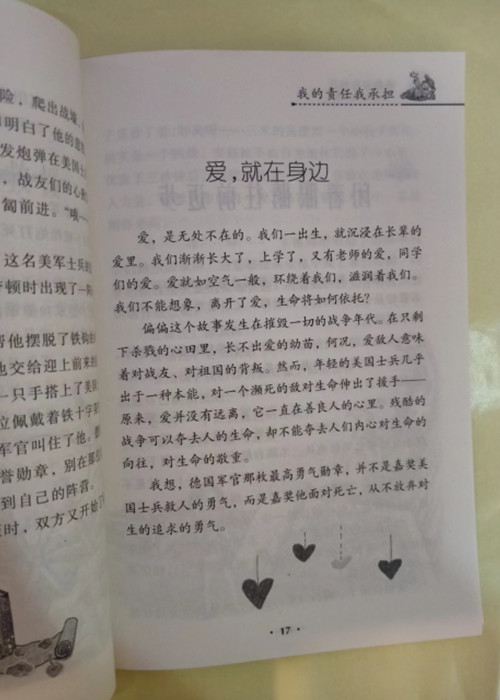 险，爬出战壕，
明白了他的意
发炮弹在美国士
，战友们的心
匐前进。“哦—
这名美军士兵的
顿时出现了一阵
帮他摆脱了铁钩
他交给迎上前来的
一只手搭上了美
位佩戴着铁十字
军官叫住了他。
誉勋章，别在那
到自己的阵营。
时，双方又开始了
我的责任我承担
爱，就在身边
爱，是无处不在的。我们一出生，就沉浸在长辈的
爱里。我们渐渐长大了，上学了，又有老师的爱，同学
们的爱。爱就如空气一般，环绕着我们，滋润着我们。
我们不能想象，离开了爱，生命将如何依托？
偏偏这个故事发生在摧毁一切的战争年代。在只剩
下杀戮的心田里，长不出爱的幼苗，何况，爱敌人意味
着对战友、对祖国的背叛。然而，年轻的美国士兵几乎
出于一种本能，对一个濒死的敌对生命伸出了援手——
原来，爱并没有远离，它一直在善良人的心里。残酷的
战争可以夺去人的生命，却不能夺去人们内心对生命的
向往，对生命的敬重。
我想，德国军官那枚最高勇气勋章，并不是嘉奖美
国士兵救人的勇气，而是嘉奖他面对死亡，从不放弃对
生的追求的勇气。
·17·